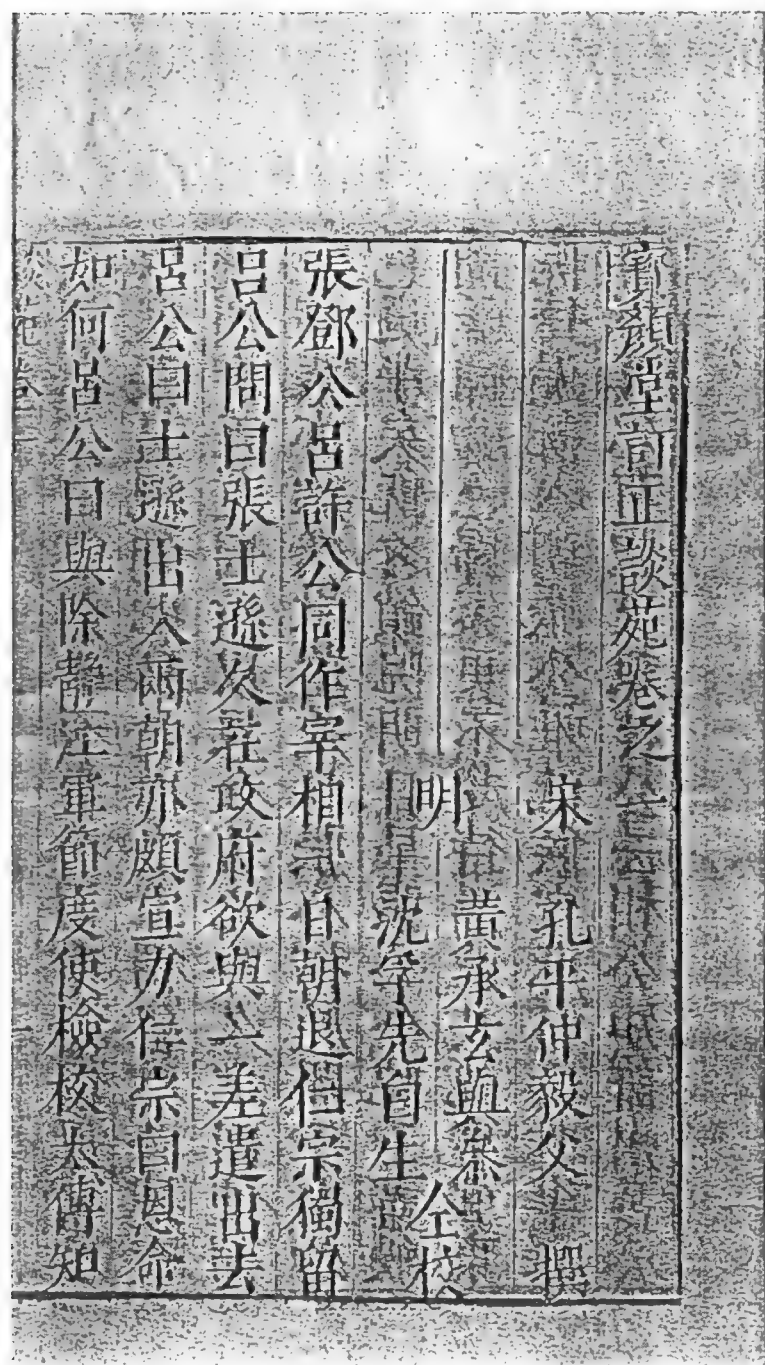 寶顏堂訂正談苑卷之一
宋 孔平仲毅父 撰
明 黃承玄與參
沈孚先白生 仝校
張鄧公呂許公同作宰相一日朝退仁宗獨留
呂公問曰張士遜久在政府欲與一差遣出去
呂公曰士遜出入兩朝亦頗宣力仁宗曰恩命
如何呂公曰與除靜江軍節度使檢校太傅知